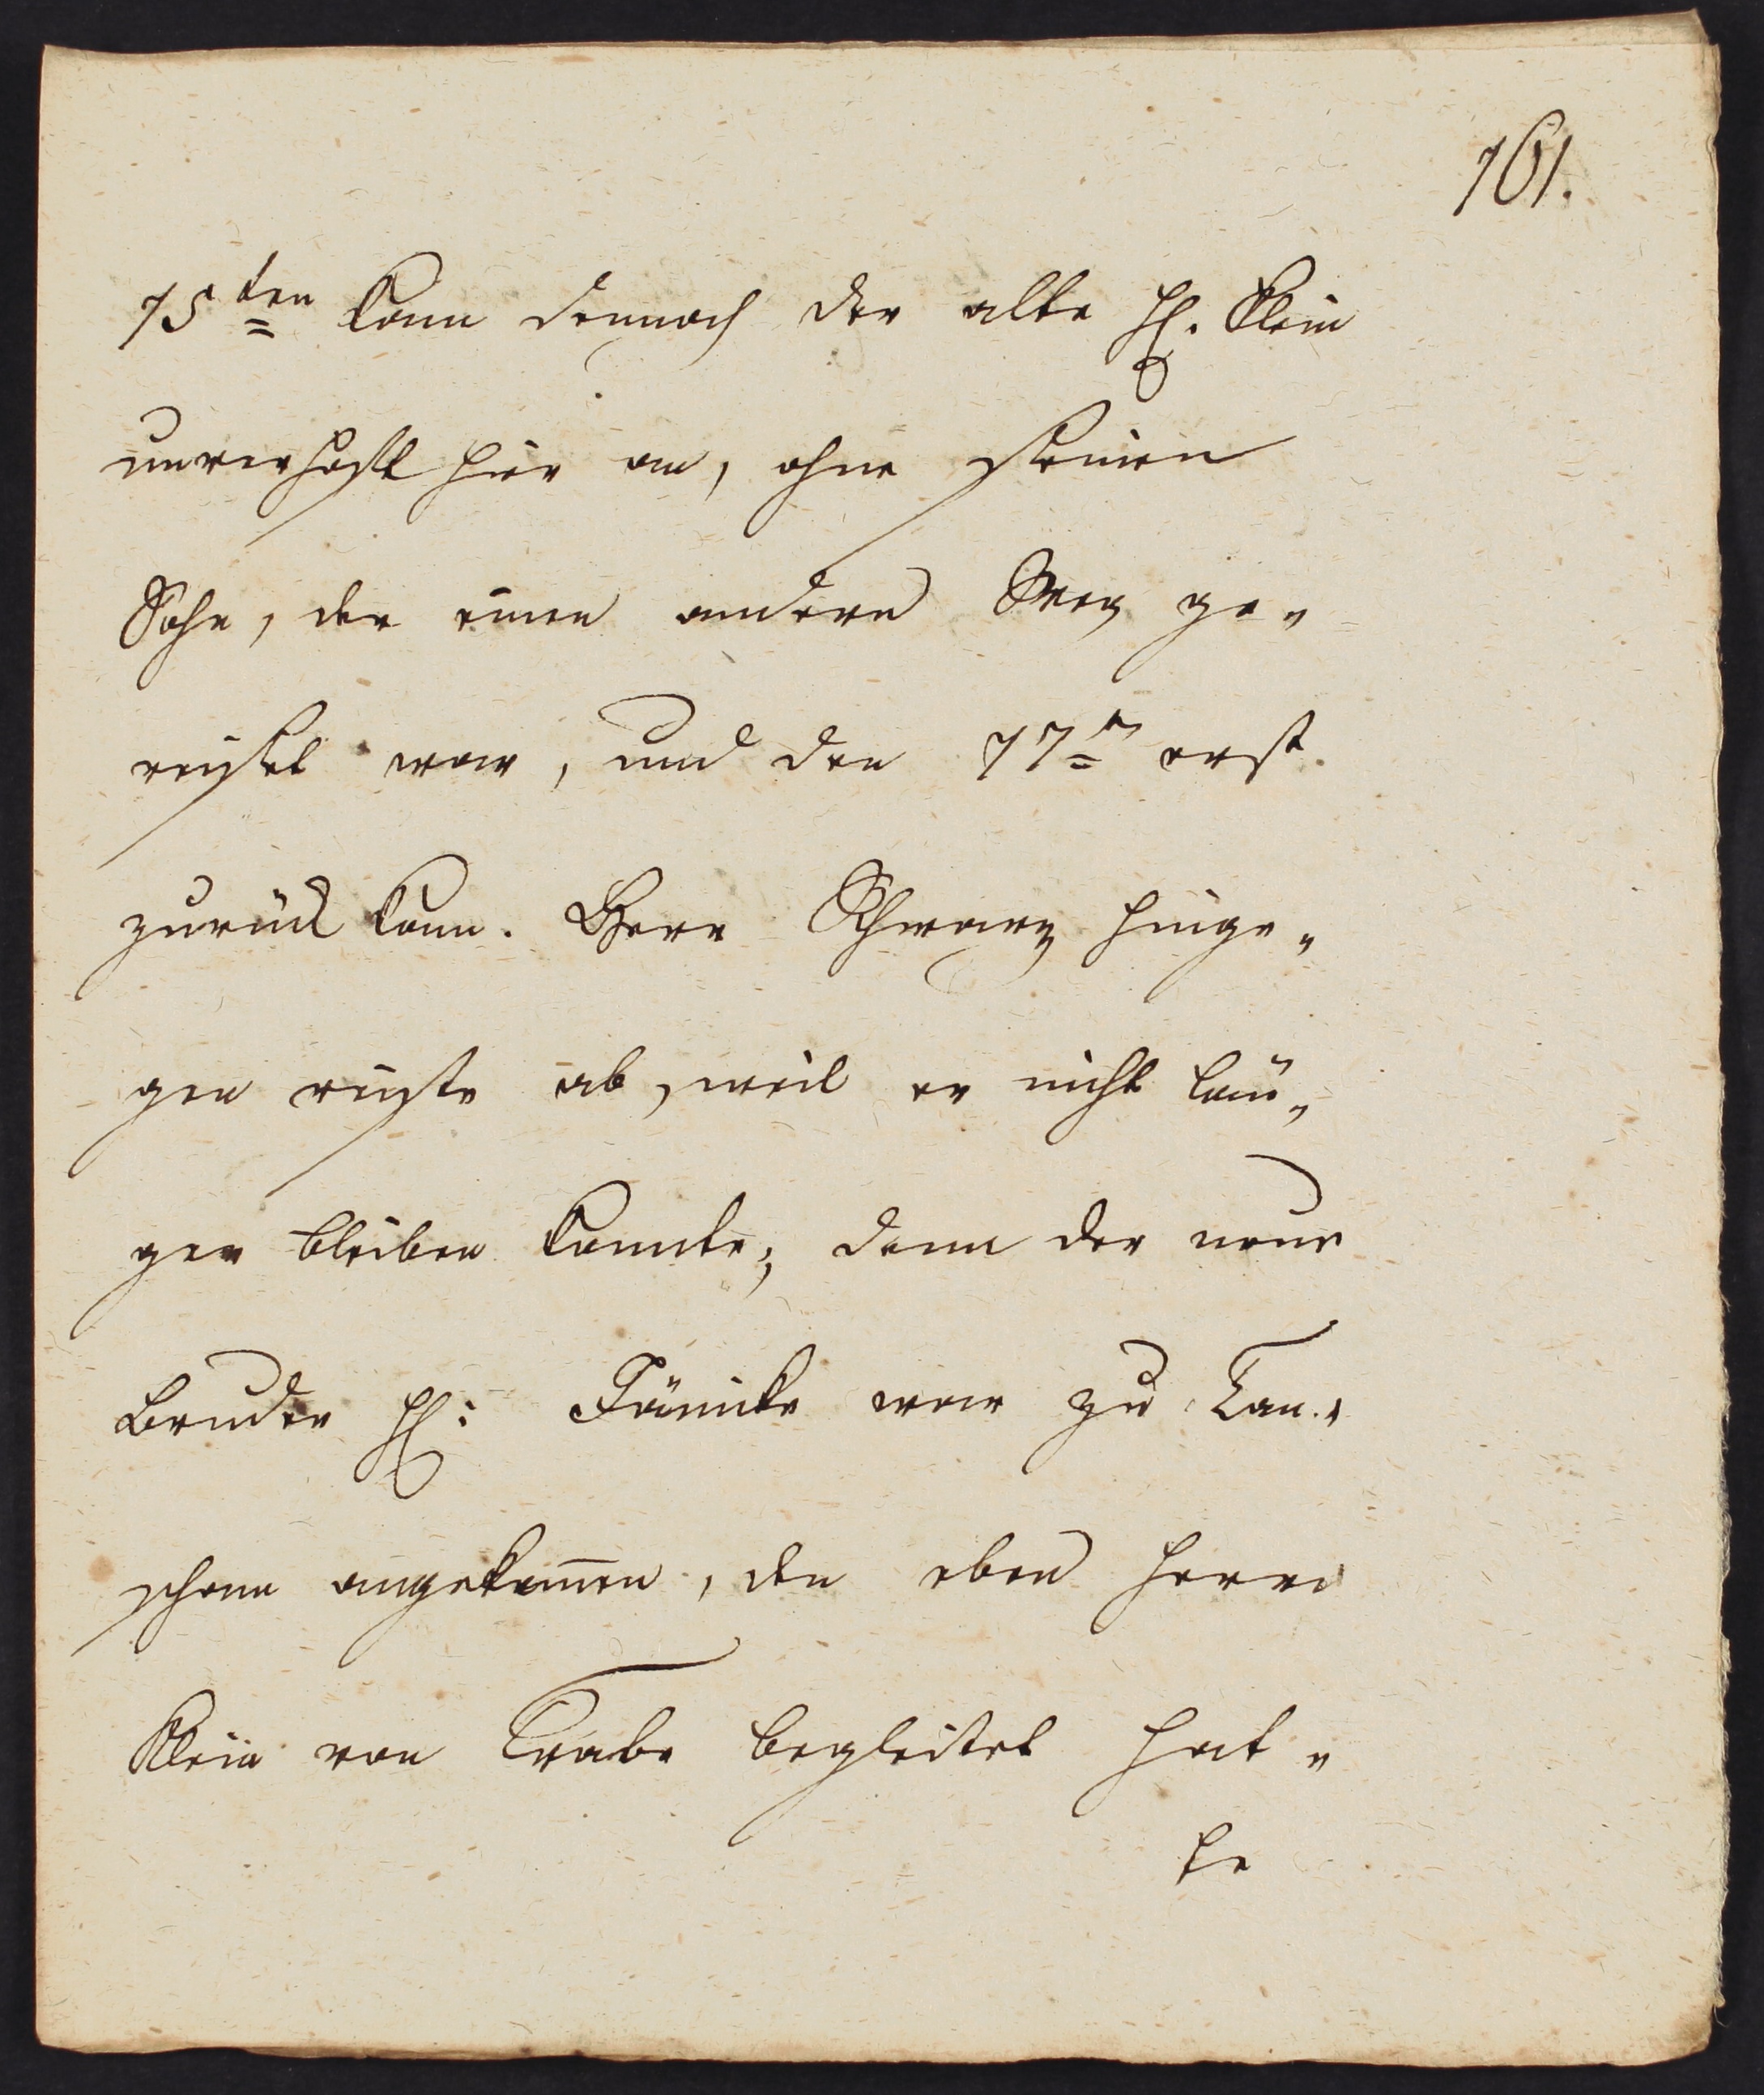 161.
15ten kam dennoch der alte H. Klein
unverhofft hier an, ohne seinen
Sohn, der einen andern Weg ge„
reiset war, und den 17n erst
zurück kam. Herr Schwarz hinge„
gen reiste ab, weil er nicht län„
ger bleiben konnte; denn der neue
Bruder H: Jänicke war zu Tan„
schaur angekom̄en, den eben Herrn
Klein von Trabe begleitet hat„
te